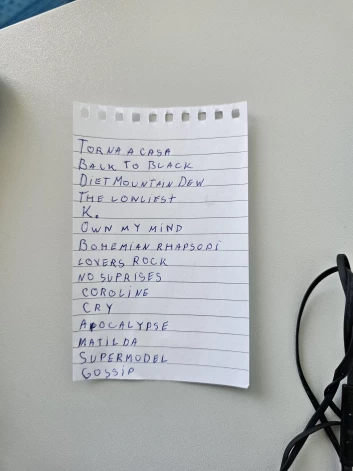 TORNA A CASA
BACK TO BLACK
DIET MOUNTAIN DEW
THE LONLIEST
K.
OWN MY MIND
BOHEMIAN RHAPSODI
LOVERS ROCK
NO SUPRISES
COROLINE
CRY
APOCALYPSE
MATILDA
SUPERMODEL
GOSSIP